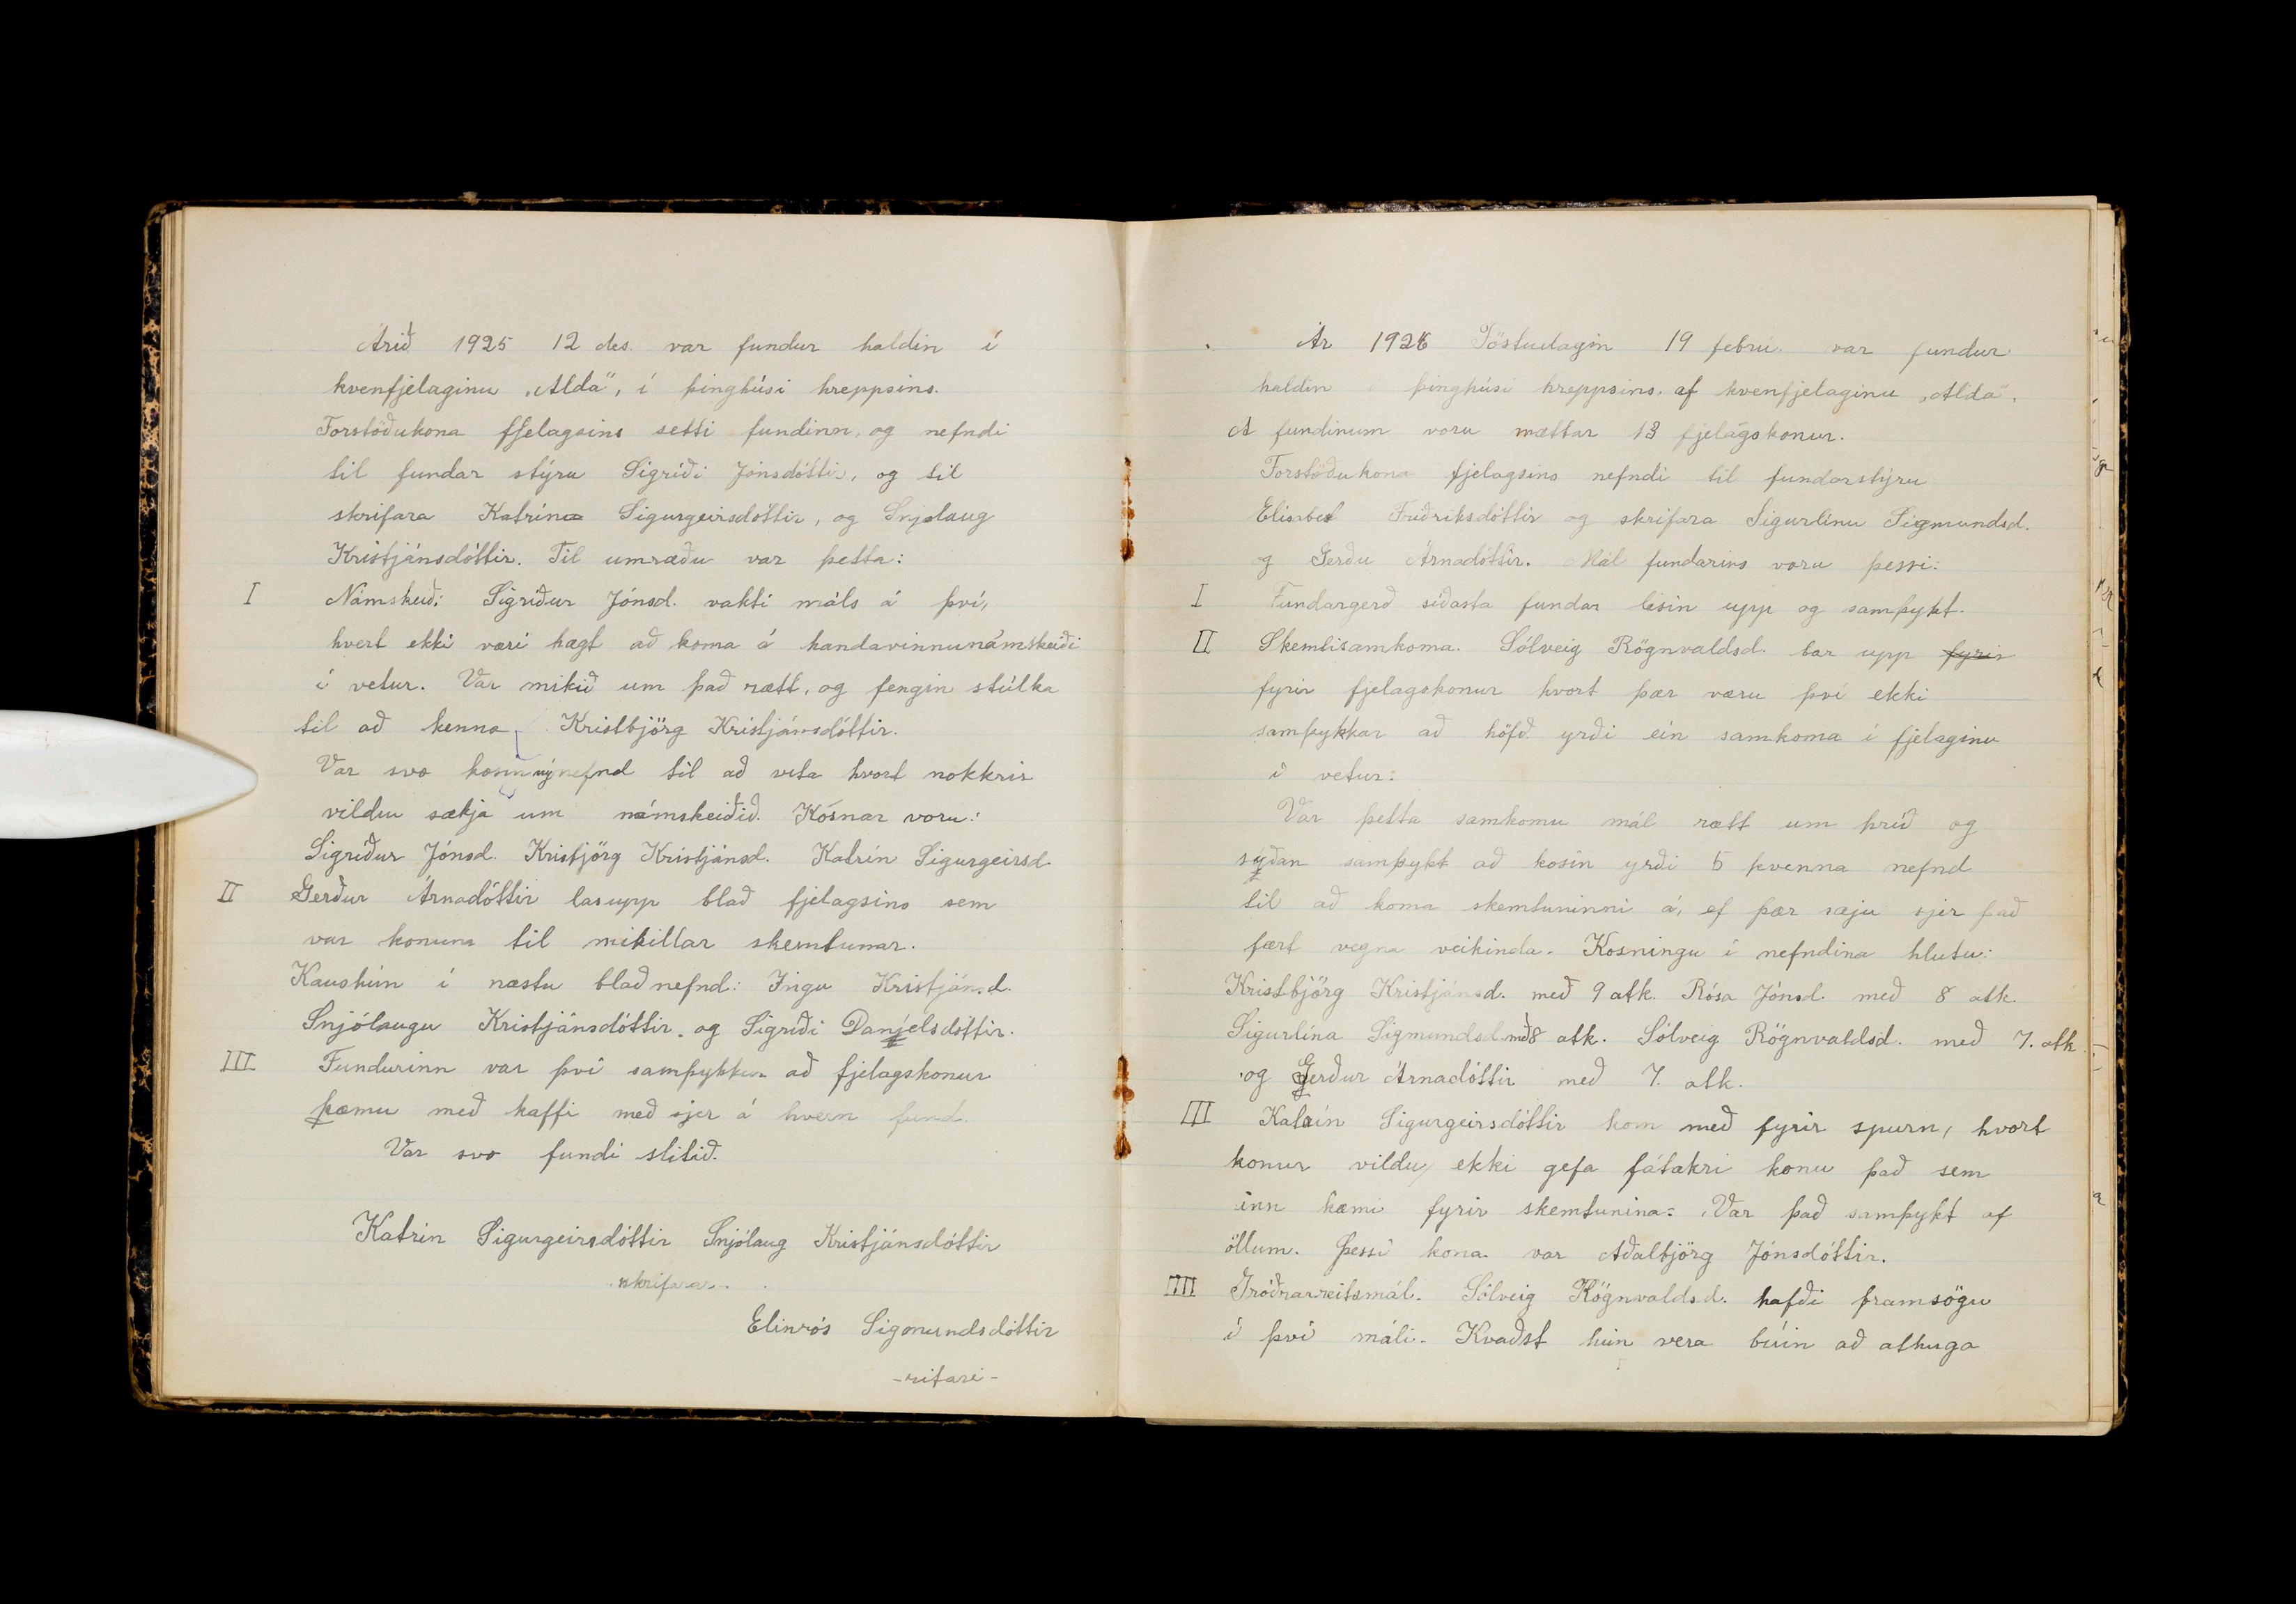 Árið 1925 12 des. var fundur haldin í
kvenfjelaginu „Alda", í þinghúsi hreppsins.
Forstöðukona fjelagsins setti fundinn, og nefndi
til fundar stýru Sigríði Jónsdóttir, og til
skrifara Katrína Sigurgeirsdóttir, og Snjólaug
Kristjánsdóttir. Til umræðu var þetta:
I Námskeið: Sigríður Jónsd. vakti máls á því,
hvert ekki væri hægt að koma á handavinnunámskeiði
í vetur. Var mikið um það rætt, og fengin stúlka
til að kenna, Kristbjörg Kristjánsdóttir.
Var svo kosin ný nefnd til að vita hvort nokkrir
vildu sækja um námskeiðið. Kosnar voru:
Sigríður Jónsd. Kristjörg Kristjánsd. Katrín Sigurgeirsd.
II Gerður Árnadóttir las upp blað fjelagsins sem
var konum til mikillar skemtunar.
Kaus hún í næstu blaðnefnd: Ingu Kristjánsd.
Snjólaugu Kristjánsdóttir. og Sigríði Danjelsdóttir.
III Fundurinn var því samþykkur að fjelagskonur
kæmu með kaffi með sjer á hvern fund.
Var svo fundi slitið.
Katrín Sigurgeirsdóttir Snjólaug Kristjánsdóttir
skrifarar.
Elinrós Sigmundsdóttir
-ritari-
Ár 1926 Föstudagin 19 febru. var fundur
haldin í þinghúsi hreppsins. af kvenfjelaginu „Alda".
Á fundinum voru mættar 13 fjelagskonur.
Forstöðukona fjelagsins nefndi til fundarstýru
Elisabet Friðriksdóttir og skrifara Sigurlínu Sigmundsd.
og Gerðu Árnadóttir. Mál fundarins voru þessi:
I Fundargerð síðasta fundar lesin upp og samþykt.
II Skemtisamkoma. Sólveig Rögnvaldsd. bar upp fyrir
fyrir fjelagskonur hvort þær væru því ekki
samþykkar að höfð yrði ein samkoma í fjelaginu
í vetur.
Var þetta samkomu mál rætt um hríð og
síðan samþykt að kosin yrði 5 kvenna nefnd
til að koma skemtuninni á, ef þær sæju sjer það
fært vegna veikinda. Kosningu í nefndina hlutu:
Kristbjörg Kristjánsd. með 9 atk. Rósa Jónsd. með 8 atk.
Sigurlína Sigmundsd. með 8 atk. Sólveig Rögnvaldsd. með 7. atk
og Gerður Árnadóttir með 7. atk.
III Katrín Sigurgeirsdóttir kom með fyrir spurn, hvort
konur vildu ekki gefa fátækri konu það sem
inn kæmi fyrir skemtunina. Var það samþykt af
öllum. Þessi kona var Aðalbjörg Jónsdóttir.
IIII Gróðrarreitsmál. Sólveig Rögnvaldsd. hafði framsögu
í því máli. Kvaðst hún vera búin að athuga